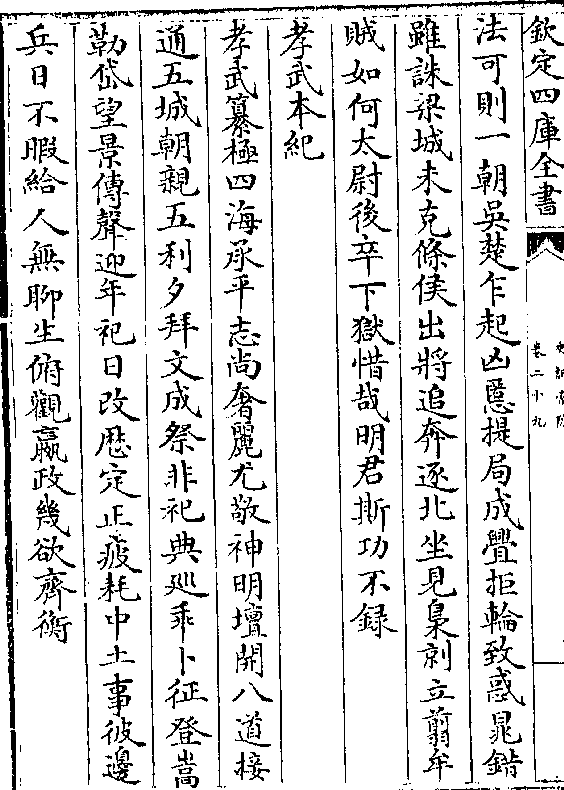 欽定四庫全書
卷二十九
法可則一朝吳楚乍起凶慝提局成舋拒輪致惑鼂錯
雖誅梁城未克條侯出將追奔逐北坐見梟剠立翦牟
賊如何太尉後卒下獄惜哉明君斯功不錄
孝武本紀
孝武纂極四海承平志尚奢麗尤敬神明壇開八道接
通五城朝親五利夕拜文成祭非祀典巡乖卜征登嵩
勒岱望景傳聲迎年祀日改歷定正疲耗中土事彼邊
兵日不暇給人無聊生俯觀嬴政幾欲齊衡